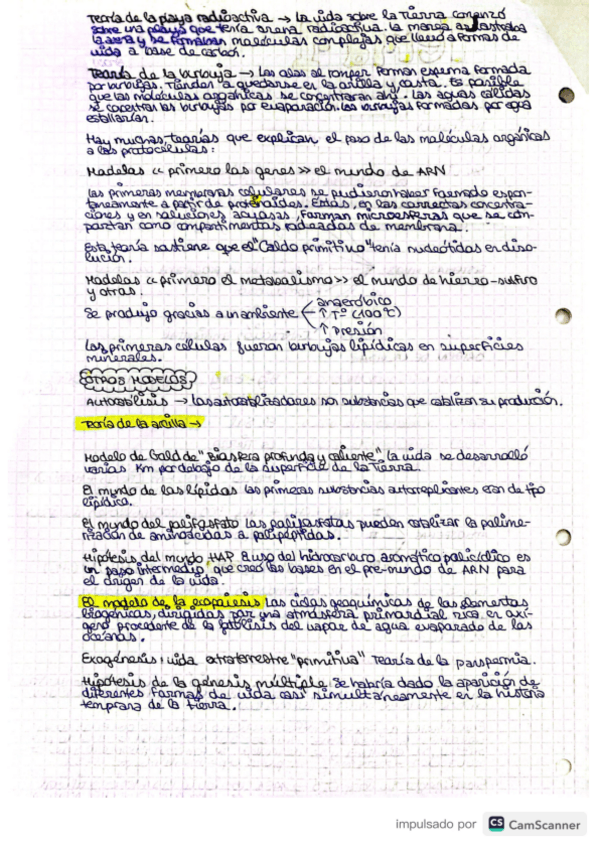 Teoría de la playa radioactiva → La vida sobre la Tierra comenzó
sobre una playa que tenía arena radioactiva. La marea arrastraba
la arena y se formaban moléculas complejas que llevó a formas de
vida a base de carbón.
Teoría de la burbuja → Las olas al romper forman espuma formada
por burbujas. Tienden a quedarse en la orilla y costa. Es posible
que las moléculas orgánicas se concentraran ahí. Las aguas cálidas
se concentran las burbujas por evaporación. Las burbujas formadas por agua
estallarían.
Hay muchas teorías que explican el paso de las moléculas orgánicas
a las protocélulas:
Modelos << primero los genes >> el mundo de ARN
Las primeras membranas celulares se pudieron haber formado espon-
táneamente a partir de proteinoides. Estas, en las correctas concentra-
ciones y en soluciones acuosas, forman microesferas que se com-
portan como compartimentos rodeados de membrana.
Esta teoría sostiene que el "Caldo primitivo" tenía nucleótidos en diso-
lución.
Modelos << primero el metabolismo >> el mundo de hierro-sulfuro
y otros.
Se produjo gracias a un ambiente
anaeróbico
↑ Tº (100ºC)
↑ Presión
Las primeras células fueron burbujas lipídicas en superficies
minerales.
OTROS MODELOS
Autocatálisis → Los autocatalizadores son substancias que catalizan su producción.
Teoría de la arcilla →
Modelo de Gold de "Biosfera profunda y caliente" La vida se desarrolló
varios Km por debajo de la superficie de la Tierra.
El mundo de los lípidos Las primeras substancias autorreplicantes eran de tipo
lipídica.
El mundo del polifosfato Los polifosfatos pueden catalizar la polime-
rización de aminoácidos a polipéptidos.
Hipótesis del mundo HAP El uso del hidrocarburo aromático policíclico es
un paso intermedio que creó las bases en el pre-mundo de ARN para
el origen de la vida.
El modelo de la ecopoiesis Los ciclos geoquímicos de los elementos
biogénicos, dirigidos por una atmósfera primordial rica en oxí-
geno procedente de la fotólisis del vapor de agua evaporado de los
océanos.
Exogénesis: vida extraterrestre "primitiva" Teoría de la panspermia.
Hipótesis de la génesis múltiple Se habría dado la aparición de
diferentes formas de vida casi simultáneamente en la historia
temprana de la tierra.
impulsado por CS CamScanner